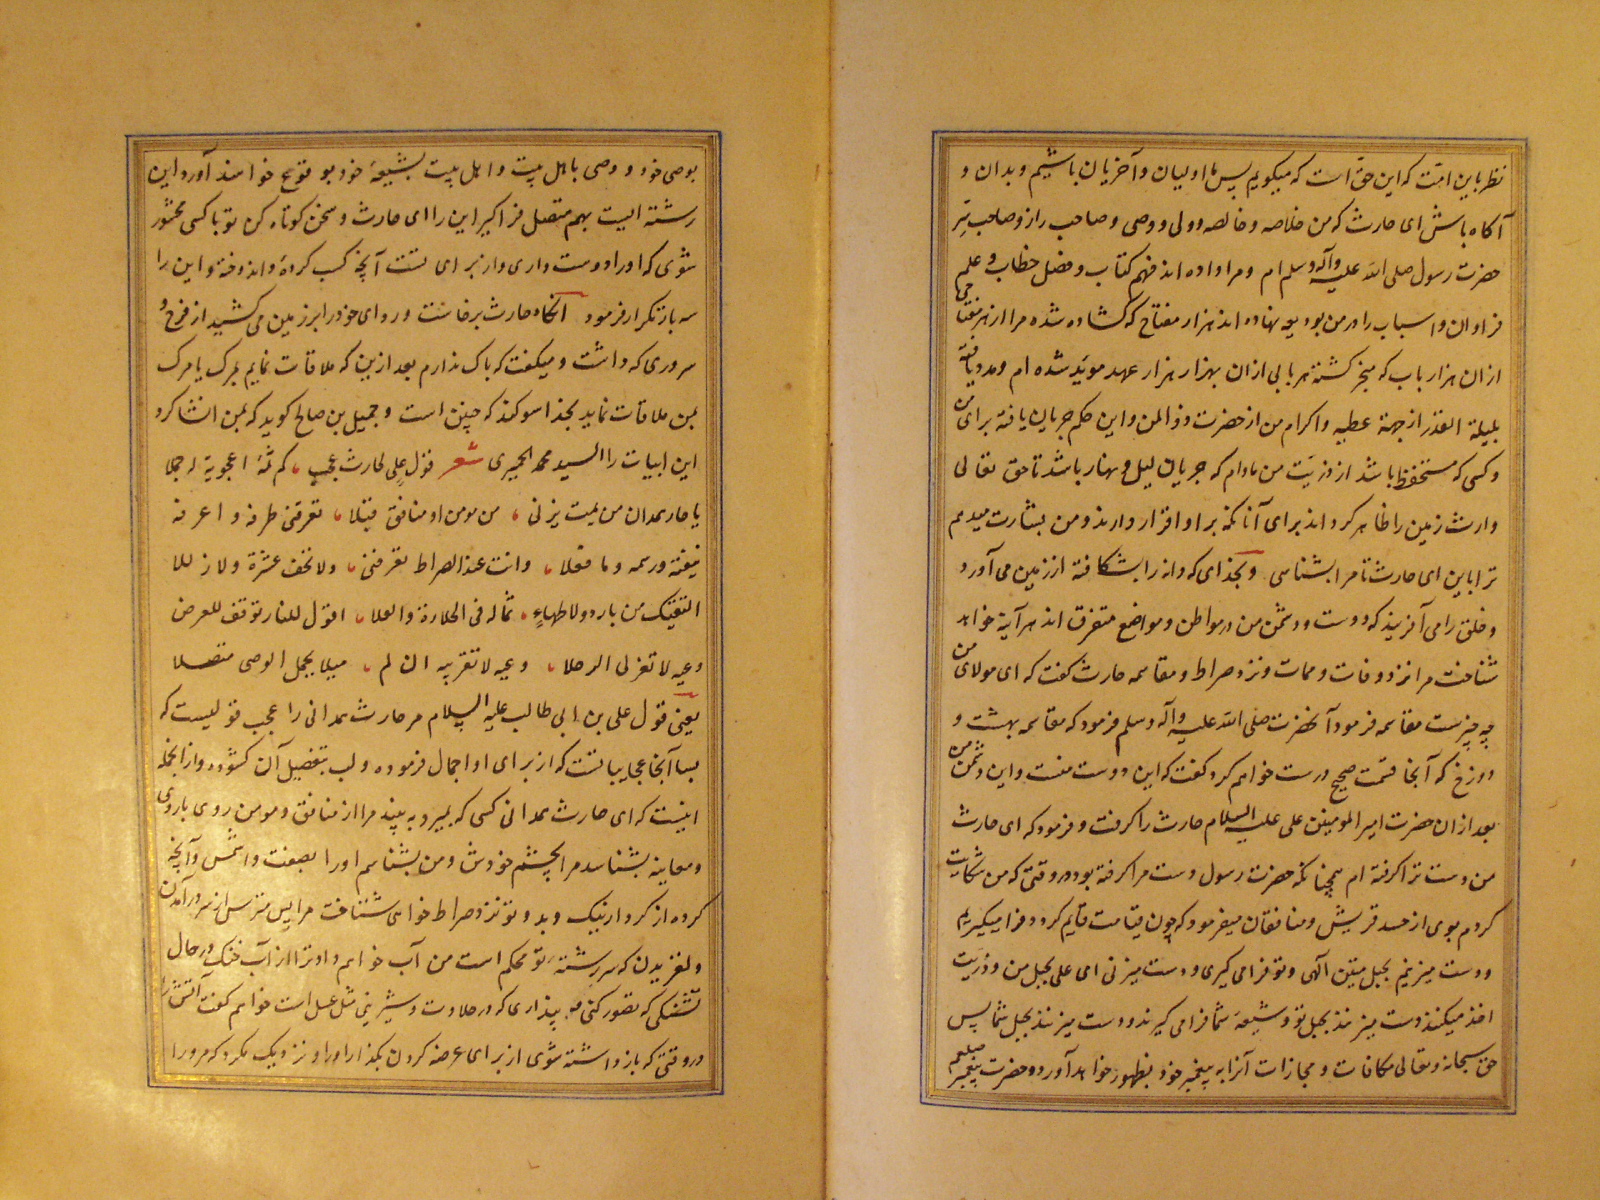 نظر باین امت که این حق است که میکویم پس ما اولیان و آخریان باشیم و بدان و
آکاه باش ای حارث که من خلاصه و خالصه و ولی و وصی و صاحب راز و صاحب سِرّ
حضرت رسول صلی الله علیه وآله وسلم ام و مرا داده اند فهم کتاب و فضل خطاب و علم
فراوان و اسباب را و در من بودیعه نهاده اند هزار مفتاح که کشاده شده مرا از هر مفتاحی
ازان هزار باب که منجر کشته هر بابی ازان بهزار هزار عهد موید شده ام و مدد یافته
بلیلة القدر از جهة عطیه و اکرام من از حضرت ذو المن و این حکم جریان یافته برای من
و کسی که مستحفظ باشد از ذریت من مادام که جریان لیل و نهار باشد تا حق تعالی
وارث زمین را ظاهر کرداند برای آنانکه براو اقرار دارند و من بشارت میدهم
ترا باین ای حارث تا مرا بشناسی وبخدای که دانه را بشکافته از زمین می آورد
و خلق را می آفریند که دوست و دشمن من در مواطن و مواضع متفرق اند هر آینه خواهد
شناخت مرا نزد وفات و ممات و نزد صراط و مقاسمه حارث کفت که ای مولای من
چه چیزست مقاسمه فرمود آنحضرت صلی الله علیه وآله وسلم فرمود که مقاسمه بهشت و
دوزخ که آنجا قسمت صحیح درست خواهم کرد کفت که این دوست منست و این دشمن من
بعد ازان حضرت امیر المومنین علی علیه السلام حارث را کرفت و فرمود که ای حارث
من دست ترا کرفته ام همچنانکه حضرت رسول دست مرا کرفته بود در وقتی که من شکایت
کردم بوی از حسد قریش و منافقان میفرمود که چون قیامت قایم کردد فرا میکیریم
و دست میزنیم بحبل متین آلهی و تو فرا می کیری و دست میزنی ای علی بحبل من و ذریت
اخذ میکنند دست میزنند بحبل تو و شیعهٔ شما فرا می کیرند و دست میزنند بحبل شما پس
حق سبحانه و تعالی مکافات و مجازات آنرا به پیغمبر خود بظهور خواهد آورد و حضرت پیغمبر صلعم
بوصی خود و وصی باهل بیت و اهل بیت بشیعهٔ خود بوقوع خواهند آورد این
رشته ایست بهم متصل فراکیر این را ای حارث و سخن کوتاه کن تو با کسی محشور
شوی که او را دوست داری و از برای تست آنچه کسب کردهٔ و اندوخته و این را
سه بار تکرار فرمود آنکاه حارث برخاست و ردای خود را بر زمین می کشید از فرح و
سروری که داشت و میکفت که باک ندارم بعد ازین که ملاقات نمایم بمرک یا مرک
بمن ملاقات نماید بخدا سوکند که چنین است و جمیل بن صالح کوید که بمن انشا کرد
این ابیات را السید محمد الحمیری شعر قول علی لحارث عجب کم ثمّ اعجوبة له جملا
یا حار همدان من یمت یرنی من مومن او منافق قبلا تعرفنی طرفه و اعرفه
بنعته و رسمه و ما فعلا وانت عند الصراط تعرفنی ولا تخف عثرة ولا زللا
اقول للنار توقف للعرض
دعیه لا تقربیه ان لم حبلا بحبل الوصی متصلا
یعنی قول علی بن ابی طالب علیه السلام مر حارث همدانی را عجب قولیست که
بسا آنجا عجایبهاست که از برای او اجمال فرموده و لب بتفصیل آن کشوده و از انجمله
اینست که ای حارث همدانی کسی که بمیرد به بیند مرا از منافق و مومن روی باروی
و معاینه بشناسد مرا بچشم خودش و من بشناسم او را بصفت و اسمش و آنچه
کرده از کردار نیک و بد و تو نزد صراط خواهی شناخت مرا پس مترس از سر درآمدن
و لغزیدن که سررشتهٔ تو محکم است من آب خواهم داد ترا از آب خنک در حال
تشنکی که تصور کنی و پنداری که در حلاوت و شیرینی مثل عسل است خواهم کفت آتش را
در وقتی که بازداشته شوی از برای عرضه کردن بکذار او را و نزدیک مکرد که مرو را